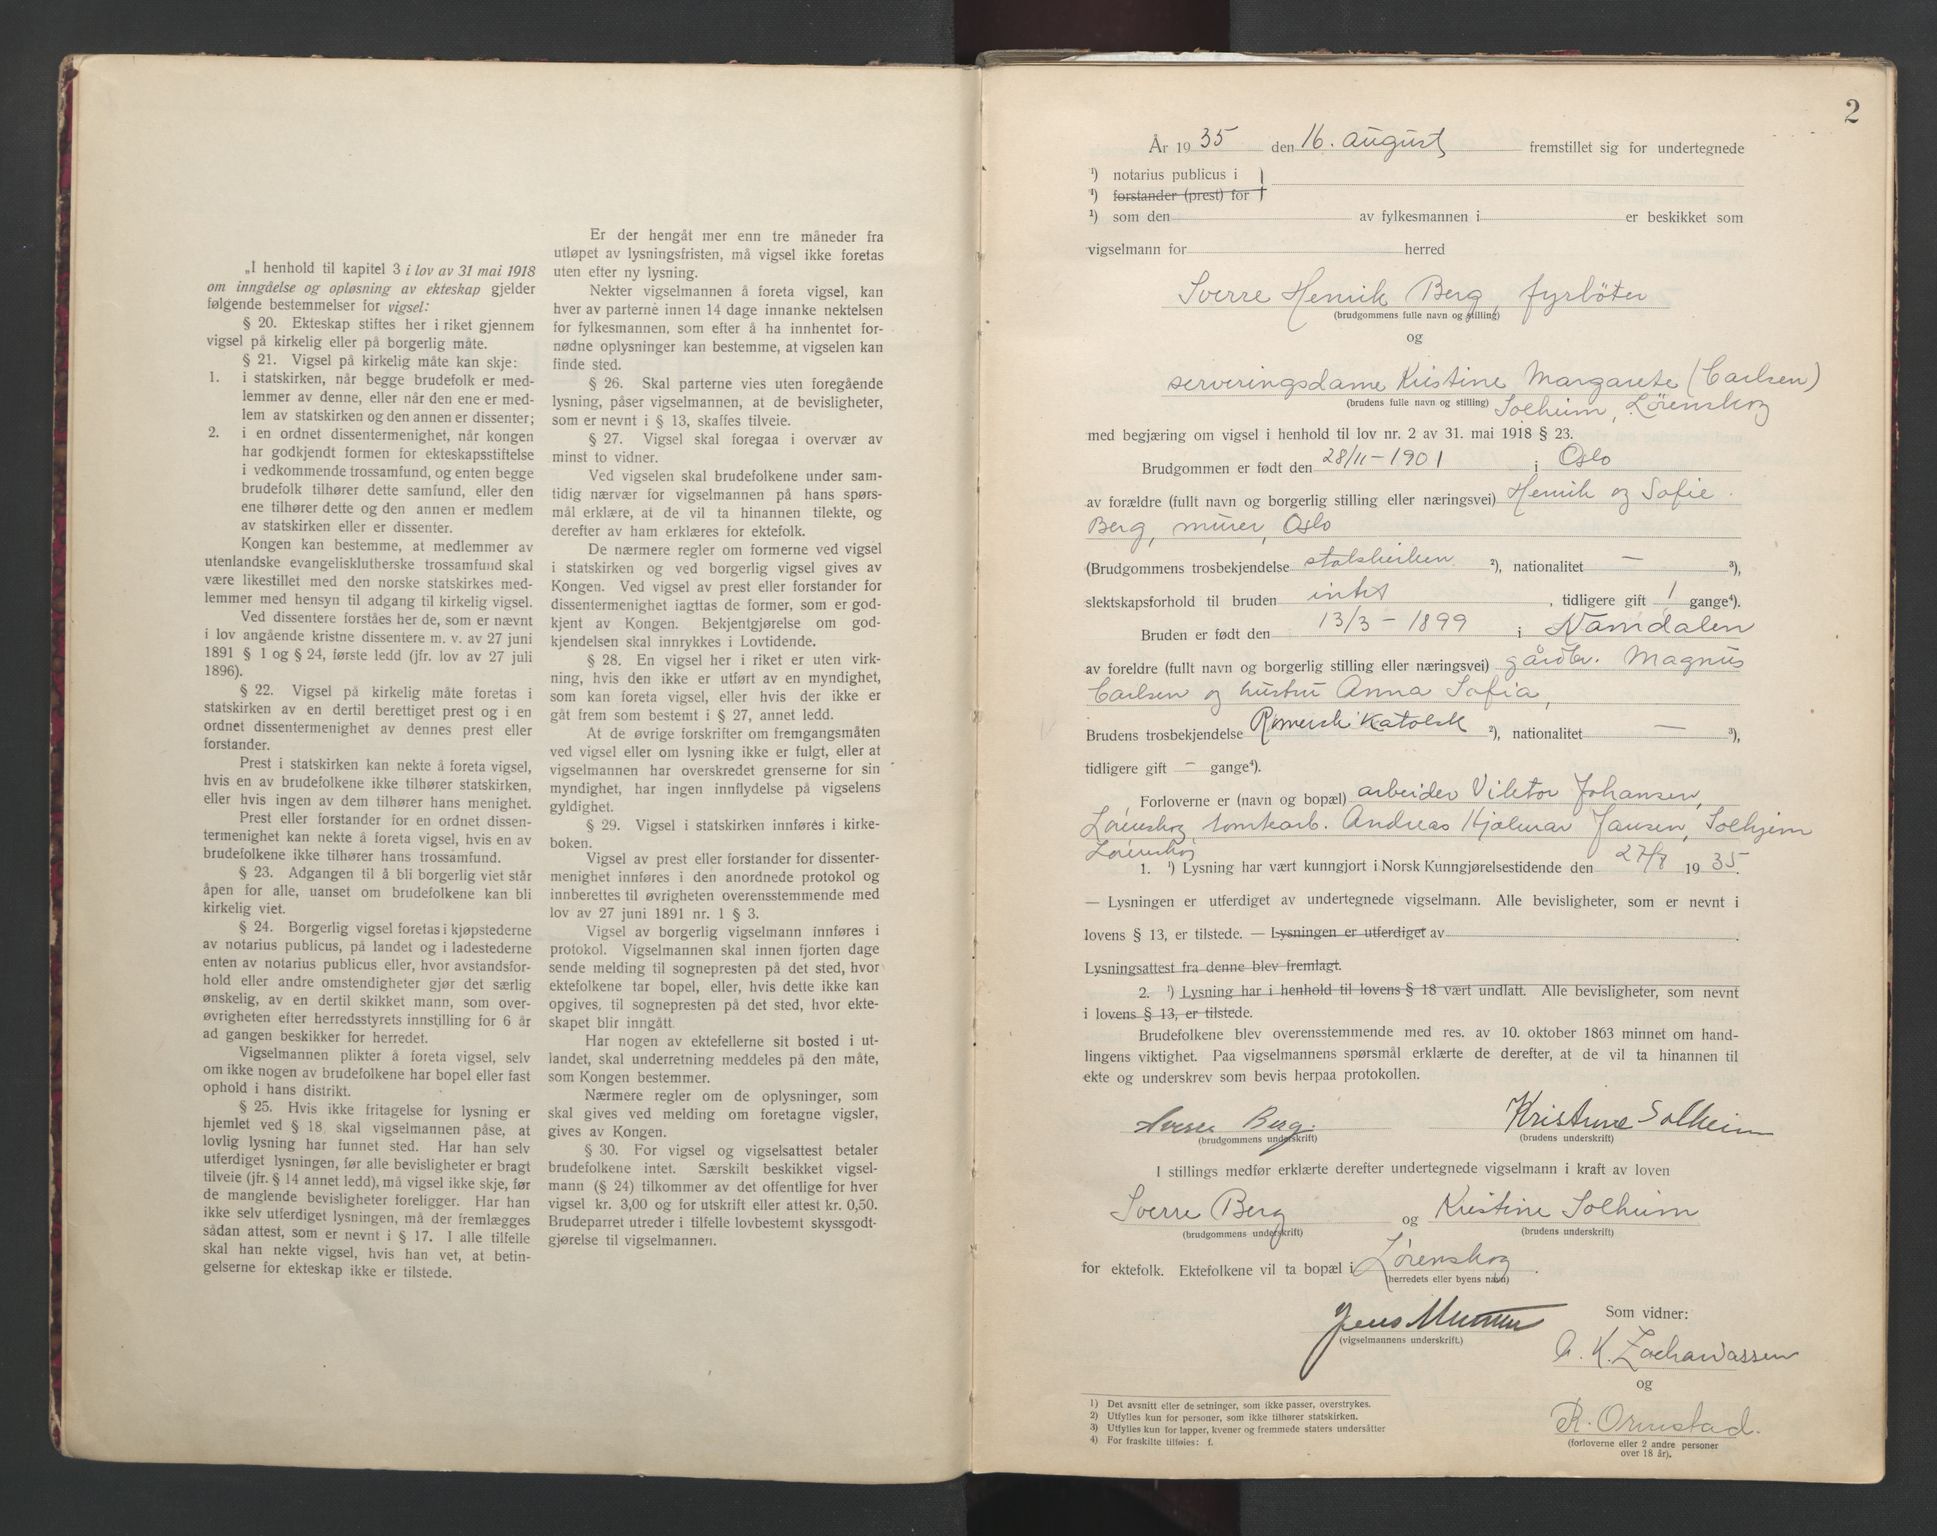 „I henhold til kapitel 3 i lov av 31 mai 1918
om inngåelse og opløsning av ekteskap gjelder
følgende bestemmelser for vigsel:
§ 20. Ekteskap stiftes her i riket gjennem
vigsel på kirkelig eller på borgerlig måte.
§ 21. Vigsel på kirkelig måte kan skje:
1. i statskirken, når begge brudefolk er med-
lemmer av denne, eller når den ene er med-
lem av statskirken og den annen er dissenter;
2. i en ordnet dissentermenighet, når kongen
har godkjendt formen for ekteskapsstiftelse
i vedkommende trossamfund, og enten begge
brudefolk tilhører dette samfund, eller den
ene tilhører dette og den annen er medlem
av statskirken eller er dissenter.
Kongen kan bestemme, at medlemmer av
utenlandske evangeliskluтherske trossamfund skal
være likestillet med den norske statskirkes med-
lemmer med hensyn til adgang til kirkelig vigsel.
Ved dissentere forståes her de, som er nævnt
i lov angående kristne dissentere m. v. av 27 juni
1891 § 1 og § 24, første ledd (jfr. lov av 27 juli
1896).
§ 22. Vigsel på kirkelig måte foretas i
statskirken av en dertil berettiget prest og i en
ordnet dissentermenighet av dennes prest eller
forstander.
Prest i statskirken kan nekte å foreta vigsel,
hvis en av brudefolkene ikke tilhører statskirken,
eller hvis ingen av dem tilhører hans menighet.
Prest eller forstander for en ordnet dissen-
termenighet kan nekte å foreta vigsel, hvis en av
brudefolkene ikke tilhører hans trossamfund.
§ 23. Adgangen til å bli borgerlig viet står
åpen for alle, uanset om brudefolkene kan bli
kirkelig viet.
§ 24. Borgerlig vigsel foretas i kjøpstederne
av notarius publicus, på landet og i ladestederne
enten av notarius publicus eller, hvor avstandsfor-
hold eller andre omstendigheter gjør det særlig
ønskelig, av en dertil skikket mann, som over-
øvrigheten efter herredsstyrets innstilling for 6 år
ad gangen beskikker for herredet.
Vigselmannen plikter å foreta vigsel, selv
om ikke nogen av brudefolkene har bopel eller fast
ophold i hans distrikt.
§ 25. Hvis ikke fritagelse for lysning er
hjemlet ved § 18, skal vigselmannen påse, at
lovlig lysning har funnet sted. Har han selv
utferdiget lysningen, før alle bevisligheter er bragt
tilveie (jfr. § 14 annet ledd), må vigsel ikke skje, før
de manglende bevisligheter foreligger. Har han
ikke selv utferdiget lysningen, må der fremlægges
sådan attest, som er nevnt i § 17. I alle tilfelle
skal han nekte vigsel, hvis han vet, at betin-
gelserne for ekteskap ikke er tilstede.
Er der hengåt mer enn tre måneder fra
utløpet av lysningsfristen, må vigsel ikke foretas
uten efter ny lysning.
Nekter vigselmannen å foreta vigsel, kan
hver av parterne innen 14 dage innanke nektelsen
for fylkesmannen, som efter å ha innhentet for-
nødne oplysninger kan bestemme, at vigselen kan
finde sted.
§ 26. Skal parterne vies uten foregående
lysning, påser vigselmannen, at de bevisligheter,
som er nevnt i § 13, skaffes tilveie.
§ 27. Vigsel skal foregaa i overvær av
minst to vidner.
Ved vigselen skal brudefolkene under sam-
tidig nærvær for vigselmannen på hans spørs-
mål erklære, at de vil ta hinannen tilekte, og
derefter av ham erklæres for ektefolk.
De nærmere regler om formerne ved vigsel
i statskirken og ved borgerlig vigsel gives av
Kongen. Ved vigsel av prest eller forstander for
dissentermenighet iagttas de former, som er god-
kjent av Kongen. Bekjentgjørelse om god-
kjendelsen skal innrykkes i Lovtidende.
§ 28. En vigsel her i riket er uten virk-
ning, hvis den ikke er utført av en myndighet,
som kan foreta vigsel, eller hvis der ikke er
gåt frem som bestemt i § 27, annet ledd.
At de øvrige forskrifter om fremgangsmåten
ved vigsel eller om lysning ikke er fulgt, eller at
vigselmannen har overskredet grenserne for sin
myndighet, har ingen innflydelse på vigselens
gyldighet.
§ 29. Vigsel i statskirken innføres i kirke-
boken.
Vigsel av prest eller forstander for dissenter-
menighet innføres i den anordnede protokol og
innberettes til øvrigheten overensstemmende med
lov av 27 juni 1891 nr. 1 § 3.
Vigsel av borgerlig vigselmann innføres i
protokol. Vigselmannen skal innen fjorten dage
sende melding til sognepresten på det sted, hvor
ektefolkene tar bopel, eller, hvis dette ikke kan
opgives, til sognepresten på det sted, hvor ekte-
skapet blir inngått.
Har nogen av ektefellerne sit bosted i ut-
landet, skal underretning meddeles på den måte,
som Kongen bestemmer.
Nærmere regler om de oplysninger, som
skal gives ved melding om foretagne vigsler,
gives av Kongen.
§ 30. For vigsel og vigselsattest betaler
brudefolkene intet. Særskilt beskikket vigsel-
mann (§ 24) tilkommer av det offentlige for hver
vigsel kr. 3,00 og for utskrift eller attest kr. 0,50.
Brudeparret utreder i tilfelle lovbestemt skyssgodt-
gjørelse til vigselmannen.
2
År 1935 den 16. august fremstillet sig for undertegnede
1) notarius publicus i
1) forstander (prest) for
1) som den av fylkesmannen i er beskikket som
vigselmann for herred
Sverre Henrik Berg, fyrbøter
(brudgommens fulle navn og stilling)
og
serveringsdame Kristine Margarete (Carlsen)
(brudens fulle navn og stilling) Solheim, Lørenskog
med begjæring om vigsel i henhold til lov nr. 2 av 31. mai 1918 § 23.
Brudgommen er født den 28/11 - 1901 i Oslo
av forældre (fullt navn og borgerlig stilling eller næringsvei) Henrik og Sofie
Berg, murer, Oslo
(Brudgommens trosbekjendelse statskirken 2), nationalitet — 3),
slektskapsforhold til bruden intet, tidligere gift 1 gange4).
Bruden er født den 13/3 - 1899 i Namdalen
av foreldre (fullt navn og borgerlig stilling eller næringsvei) gårdbr. Magnus
Carlsen og hustru Anna Sofia,
Brudens trosbekjendelse Romersk Katolsk 2), nationalitet — 3),
tidligere gift - gange4).
Forloverne er (navn og bopæl) arbeider Viktor Johansen,
Lørenskog, tomtearb. Andreas Hjalmar Jansen, Solhjem
Lørenskog
1. 1) Lysning har vært kunngjort i Norsk Kunngjørelsestidende den 27/7 1935.
— Lysningen er utferdiget av undertegnede vigselmann. Alle bevisligheter, som er nevnt i
lovens § 13, er tilstede. — Lysningen er utferdiget av
Lysningsattest fra denne blev fremlagt.
2. 1) Lysning har i henhold til lovens § 18 vært undlatt. Alle bevisligheter, som nevnt
i lovens § 13, er tilstede.
Brudefolkene blev overensstemmende med res. av 10. oktober 1863 minnet om hand-
lingens viktighet. Paa vigselmannens spørsmål erklærte de derefter, at de vil ta hinannen til
ekte og underskrev som bevis herpaa protokollen.
Sverre Berg. Kristine Solheim
(brudgommens underskrift) (brudens underskrift)
I stillings medfør erklærte derefter undertegnede vigselmann i kraft av loven
Sverre Berg og Kristine Solheim
(brudgommens underskrift) (brudens underskrift)
for ektefolk. Ektefolkene vil ta bopæl i Lørenskog.
(herredets eller byens navn)
Jens Som vidner:
(vigselmannens underskrift.)
A. K. Zachariassen
og
R. Ormstad.
(forloverne eller 2 andre personer
over 18 år).
1) Det avsnitt eller de setninger, som ikke passer, overstrykes.
2) Utfylles kun for personer, som ikke tilhører statskirken.
3) Utfylles kun for lapper, kvener og fremmede staters undersåtter
4) For fraskilte tilføies: f.